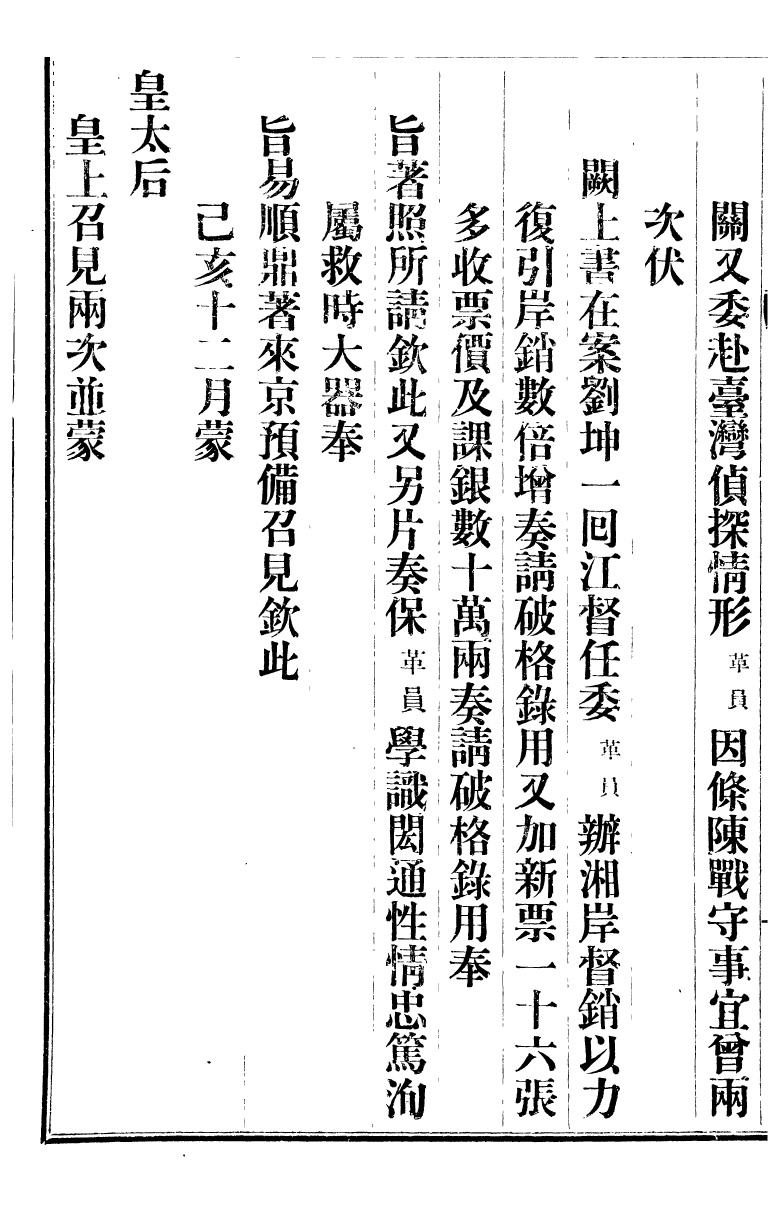 關又委赴臺灣偵探情形革員因條陳戰守事宜曾兩
次伏
闕上書在案劉坤一回江督任委革員辦湘岸督銷以力
復引岸銷數倍增奏請破格錄用又加新票一十六張
多收票價及課銀數十萬兩奏請破格錄用奉
旨著照所請欽此又另片奏保革員學識閎通性情忠篤洵
屬救時大器奉
旨易順鼎著來京預備召見欽此
己亥十二月蒙
皇太后
皇上召見兩次並蒙